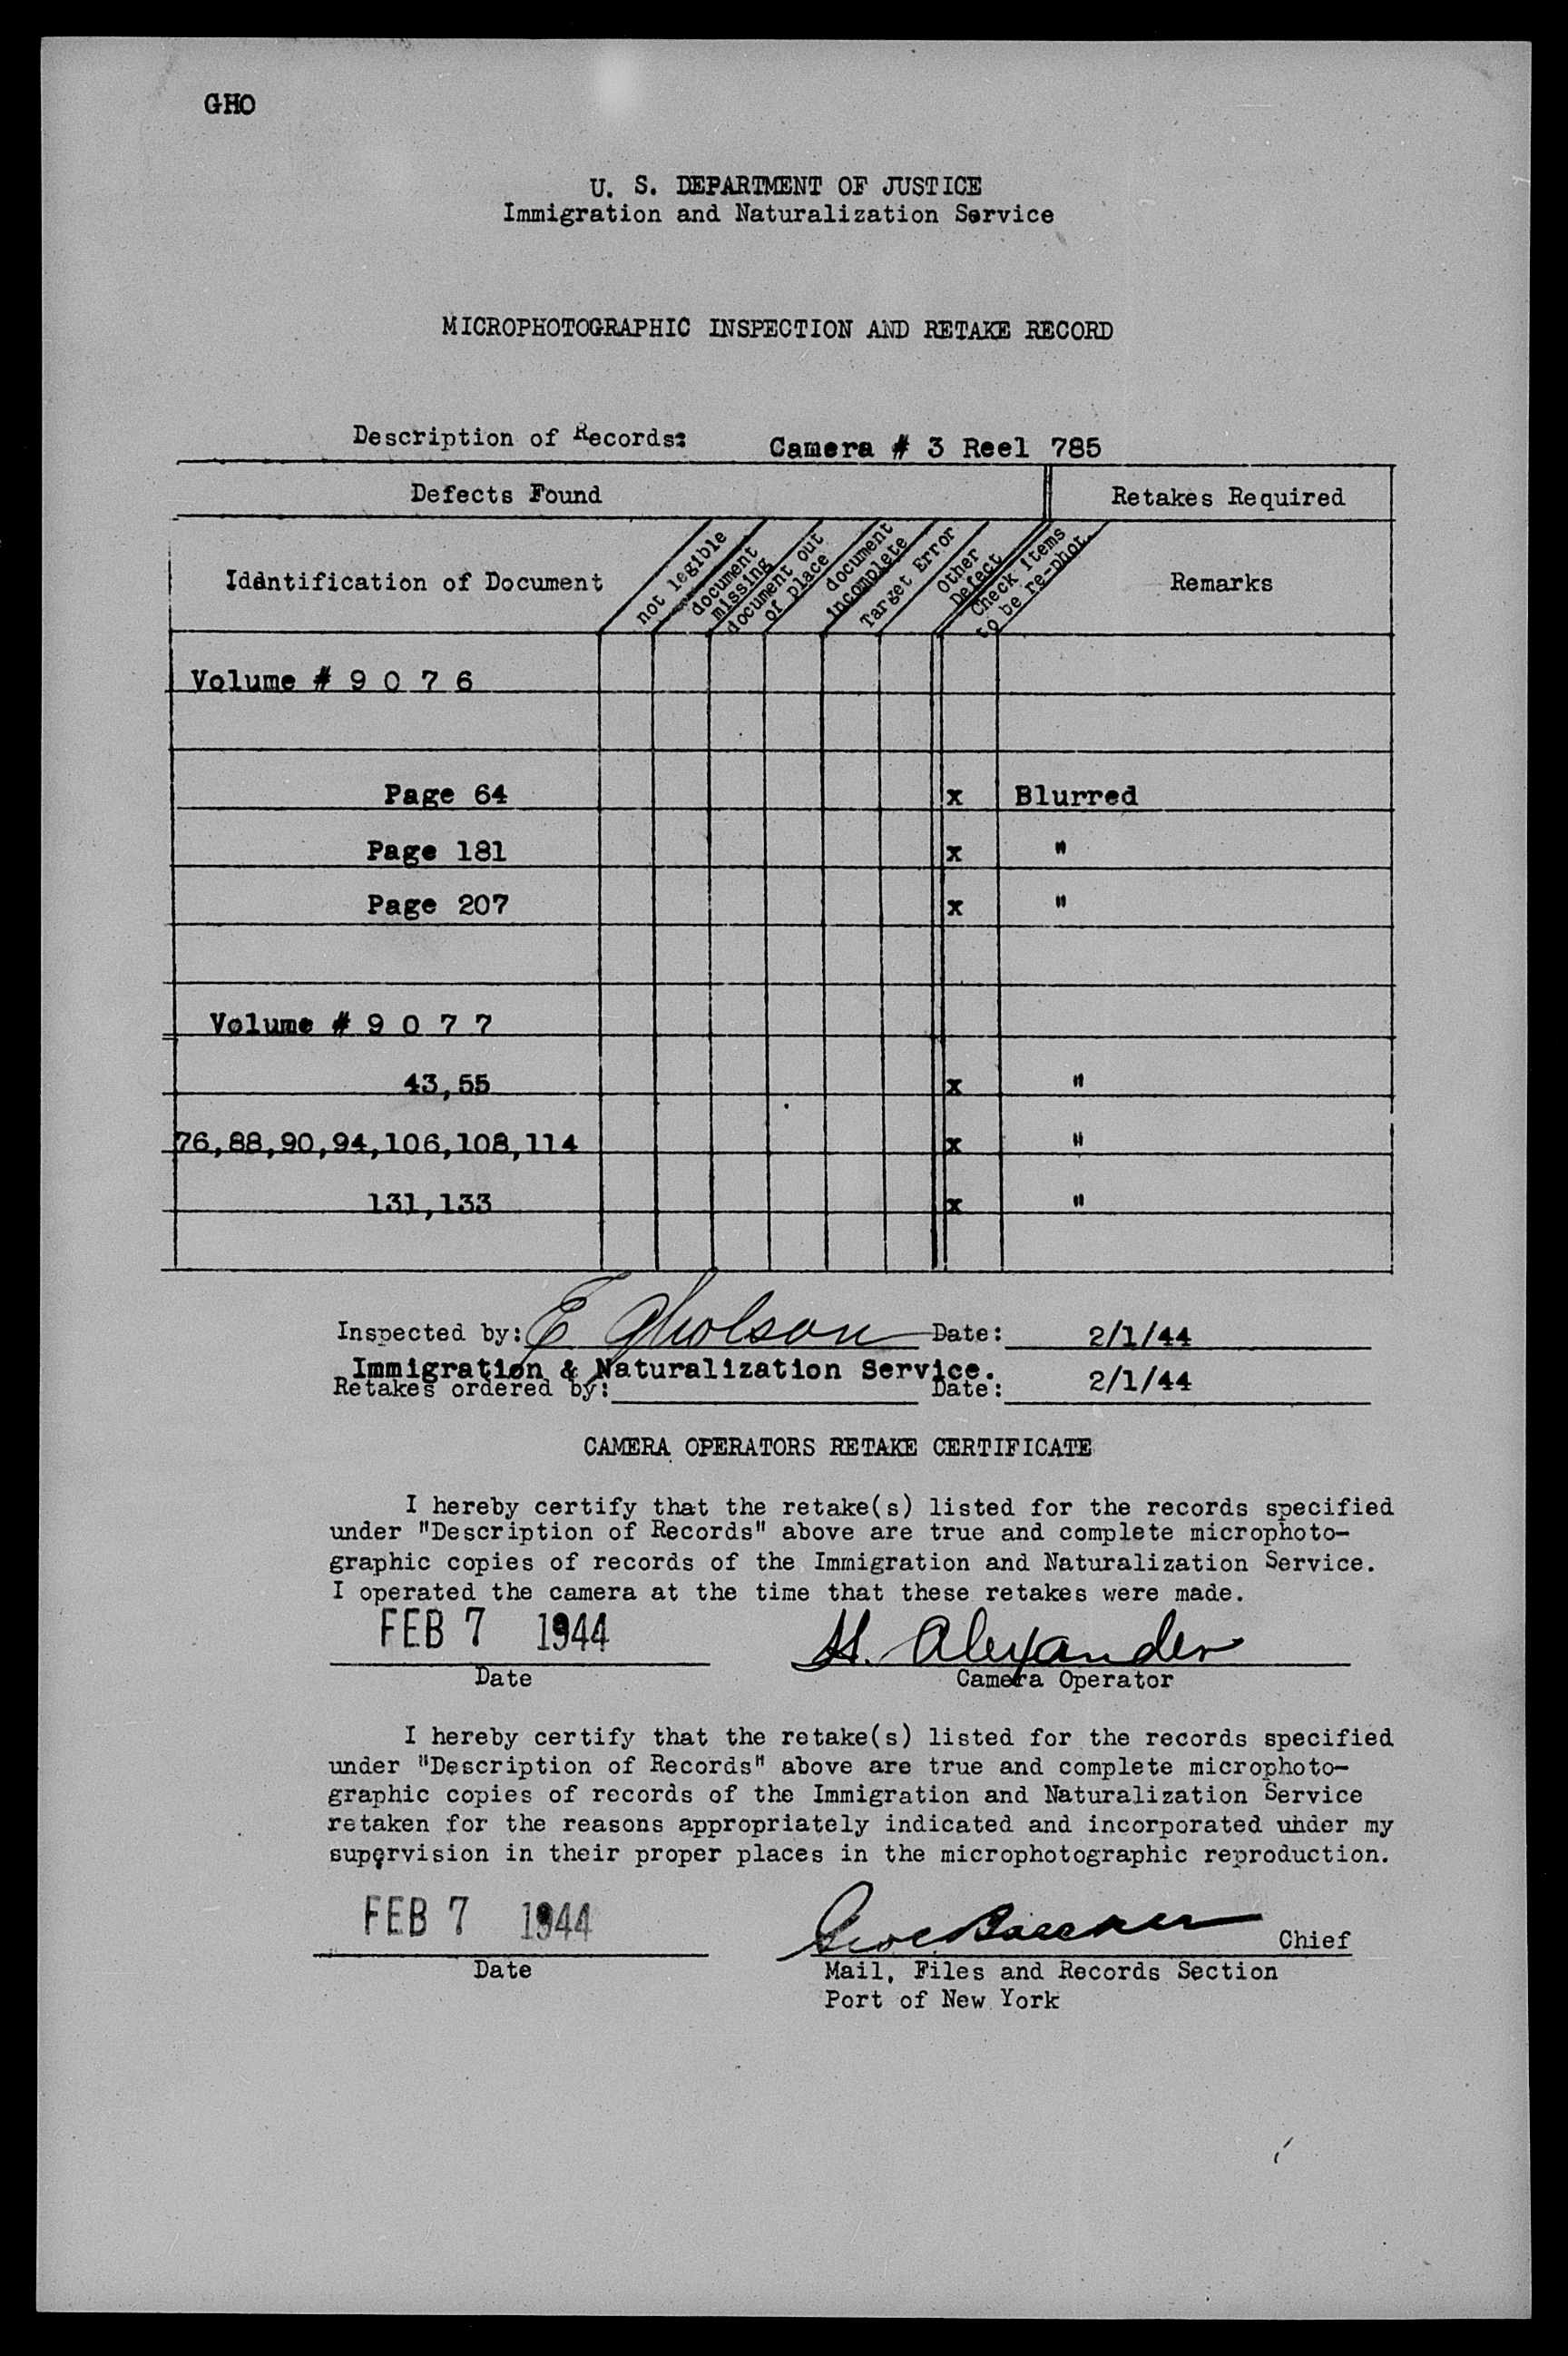 GHO
U. S. DEPARTMENT OF JUSTICE
Immigration and Naturalization Service
MICROPHOTOGRAPHIC INSPECTION AND RETAKE RECORD
Description of Records: Camera # 3 Reel 785
Defects Found Retakes Required
Identification of Document
not legible
document missing
document out of place
document incomplete
Target Error
Other Defect
Check Items to be re-phot.
Remarks
Volume # 9 0 7 6
Page 64 x Blurred
Page 181 x "
Page 207 x "
Volume # 9 0 7 7
43,55 x "
76,88,90,94,106,108,114 x "
131,133 x "
Inspected by: E Gholson Date: 2/1/44
Immigration & Naturalization Service.
Retakes ordered by: Date: 2/1/44
CAMERA OPERATORS RETAKE CERTIFICATE
I hereby certify that the retake(s) listed for the records specified
under "Description of Records" above are true and complete microphoto-
graphic copies of records of the Immigration and Naturalization Service.
I operated the camera at the time that these retakes were made.
FEB 7 1944 H. Alexander
Date Camera Operator
I hereby certify that the retake(s) listed for the records specified
under "Description of Records" above are true and complete microphoto-
graphic copies of records of the Immigration and Naturalization Service
retaken for the reasons appropriately indicated and incorporated under my
supervision in their proper places in the microphotographic reproduction.
FEB 7 1944 Chief
Date Mail, Files and Records Section
Port of New York